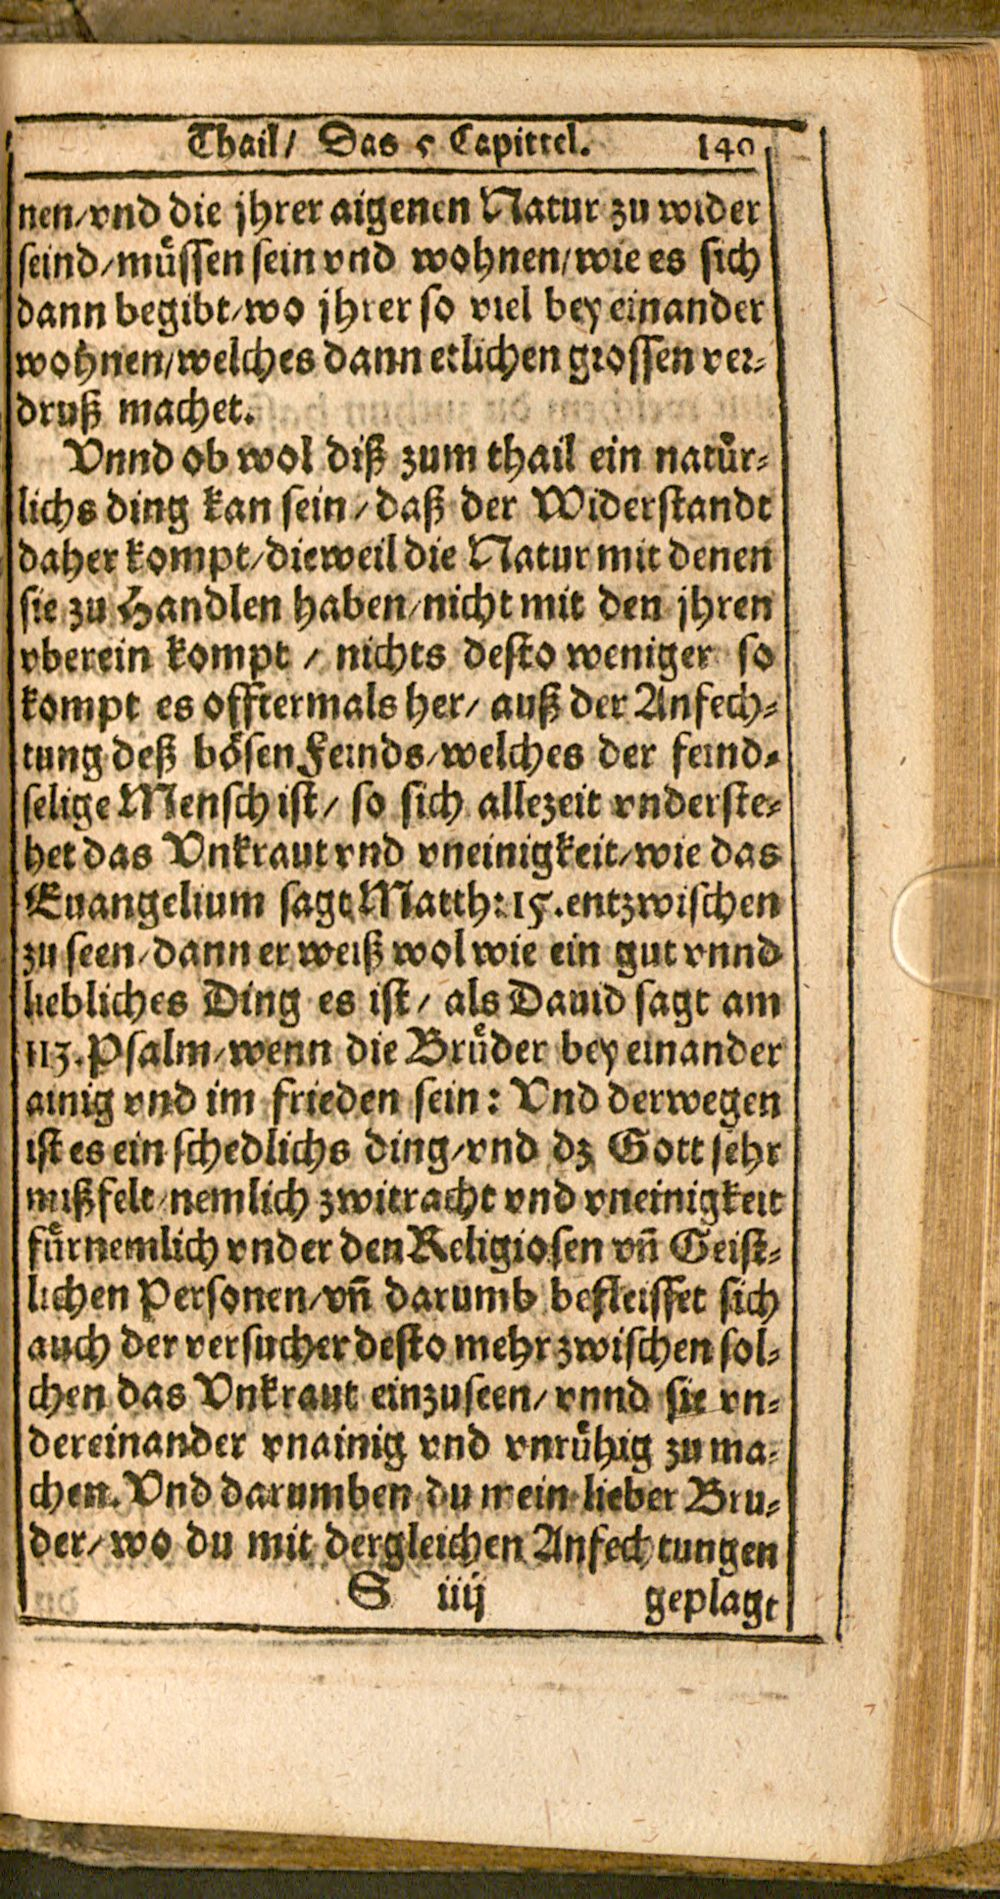 Thail/ Das 5 Capittel. 140
nen/vnd die jhrer aigenen Natur zu wider
seind/müssen sein vnd wohnen/wie es sich
dann begibt/wo jhrer so viel bey einander
wohnen/welches dann etlichen grossen ver-
druß machet.
Vnnd ob wol diß zum thail ein natür-
lichs ding kan sein/daß der Widerstandt
daher kompt/dieweil die Natur mit denen
sie zu Handlen haben/nicht mit den jhren
vberein kompt/nichts desto weniger so
kompt es offtermals her/auß der Anfech-
tung deß bösen Feinds/welches der feind-
selige Mensch ist/so sich allezeit vnderste-
het das Vnkraut vnd vneinigkeit/wie das
Euangelium sagt Matth: 15. entzwischen
zu seen/dann er weiß wol wie ein gut vnnd
liebliches Ding es ist/als Dauid sagt am
113. Psalm/wenn die Brüder bey einander
ainig vnd im frieden sein: Vnd derwegen
ist es ein schedlichs ding/vnd dz Gott sehr
mißfelt/nemlich zwitracht vnd vneinigkeit
fürnemlich vnder den Religiosen vn̄ Geist-
lichen Personen/vn̄ darumb befleisset sich
auch der versucher desto mehr zwischen sol-
chen das Vnkraut einzuseen/vnnd sie vn-
dereinander vnainig vnd vnrühig zu ma-
chen. Vnd darumben du mein lieber Bru-
der/wo du mit dergleichen Anfechtungen
S iiij geplagt